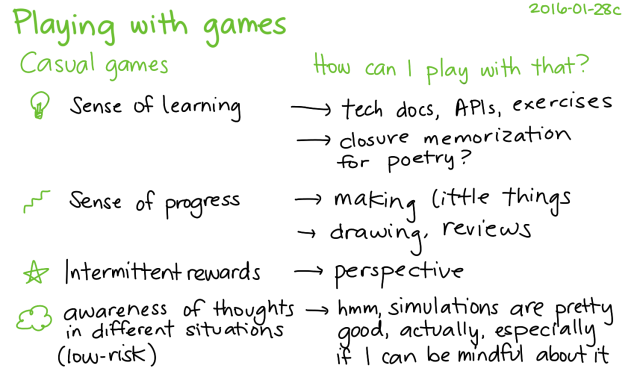 Playing with games
2016-01-28c
Casual games
How can I play with that?
Sense of learning → tech docs, APIs, exercises
→ closure memorization
for poetry?
Sense of progress → making little things
→ drawing, reviews
Intermittent rewards → perspective
awareness of thoughts → hmm, simulations are pretty
in different situations good, actually, especially
(low-risk) if I can be mindful about it